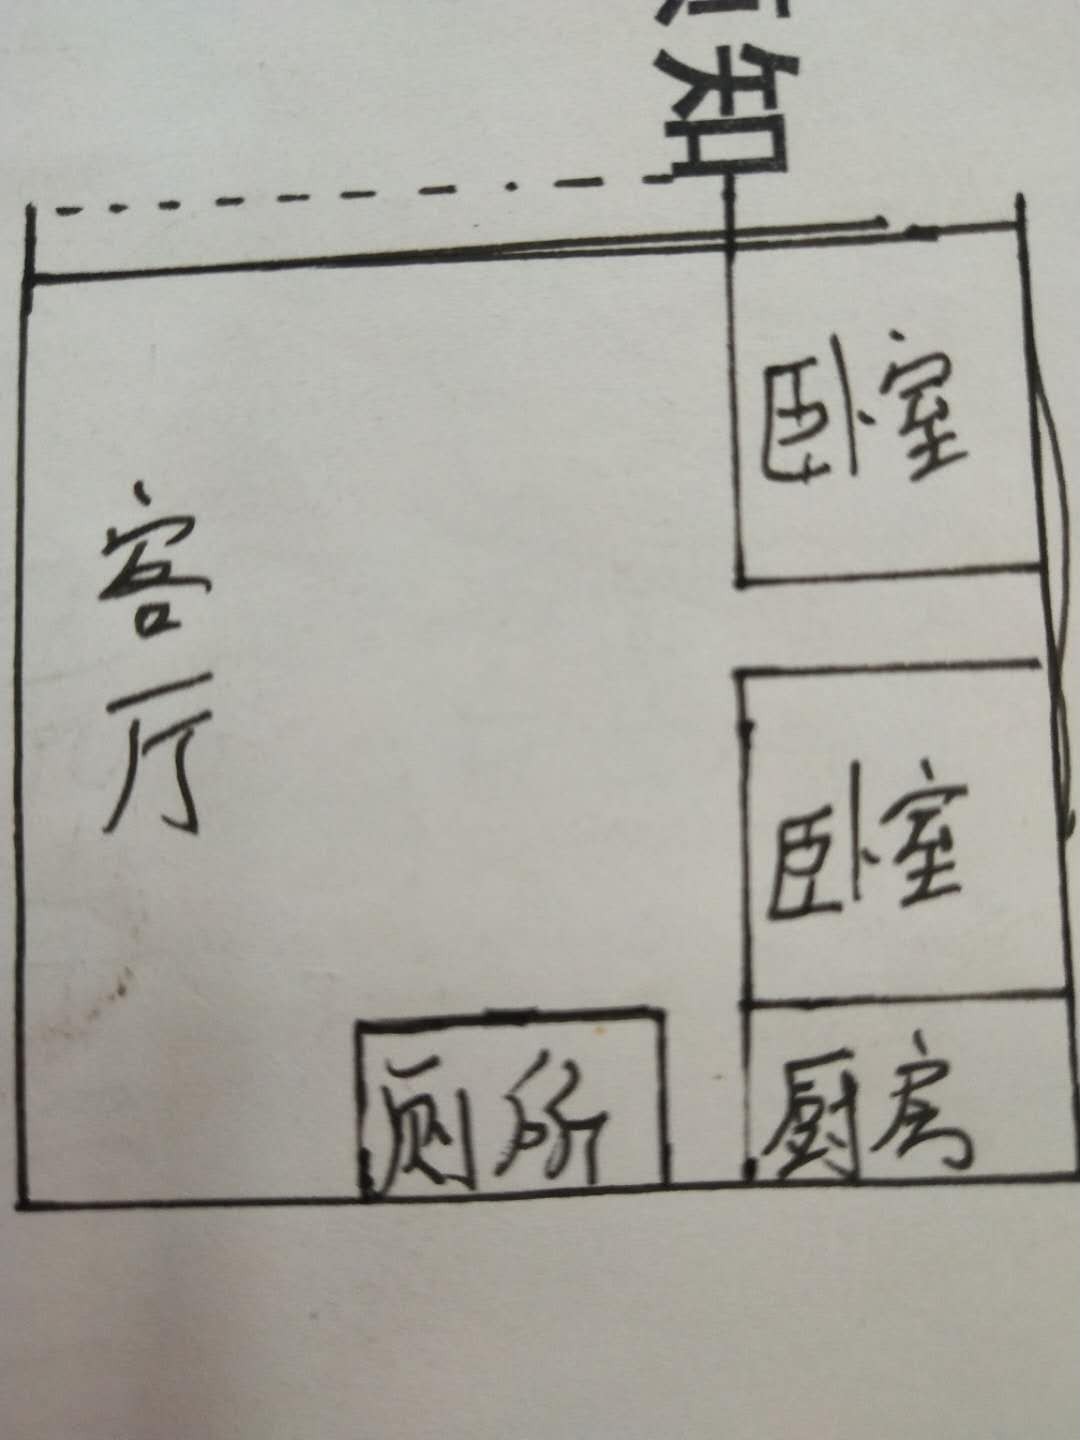 知
卧室
客厅
卧室
厕所
厨房